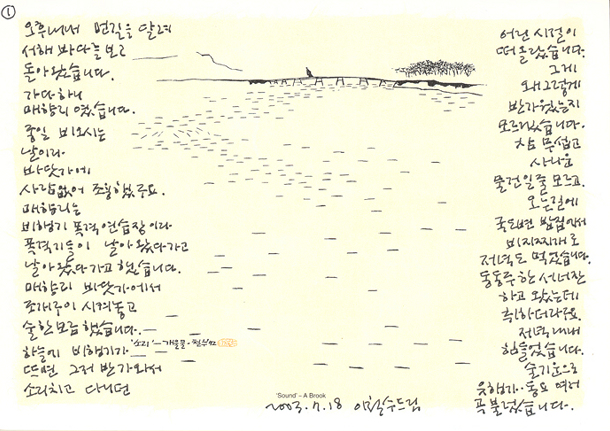 ①
오후내내 먼길을 달려
서해 바다를 보고
돌아왔습니다.
가다하니
매향리 였습니다.
종일 비오시는
날이라
바닷가에
사람없어 조용했구요.
매향리는
비행기 폭격연습장이라
폭격기들이 날아왔다가고
날아왔다가고 했습니다.
매향리 바닷가에서
조개구이 시켜놓고
술한모금 했습니다.
하늘에 비행기가
뜨면 그저 반가와서
소리치고 다니던
어린 시절이
떠올랐습니다.
그게
왜그렇게
반가웠는지
모르겠습니다.
참 무섭고
사나운
물건인줄 모르고.
오는길에
국도변 밥집에서
비지찌개로
저녁을 먹었습니다.
동동주 한 서너잔
하고 왔는데
취하더라구요.
저녁내내
힘들었습니다.
술기운으로
유행가·동요 여러
곡 불렀습니다.
'소리'
'Sound' - A Brook
2003.7.18 이철수드림